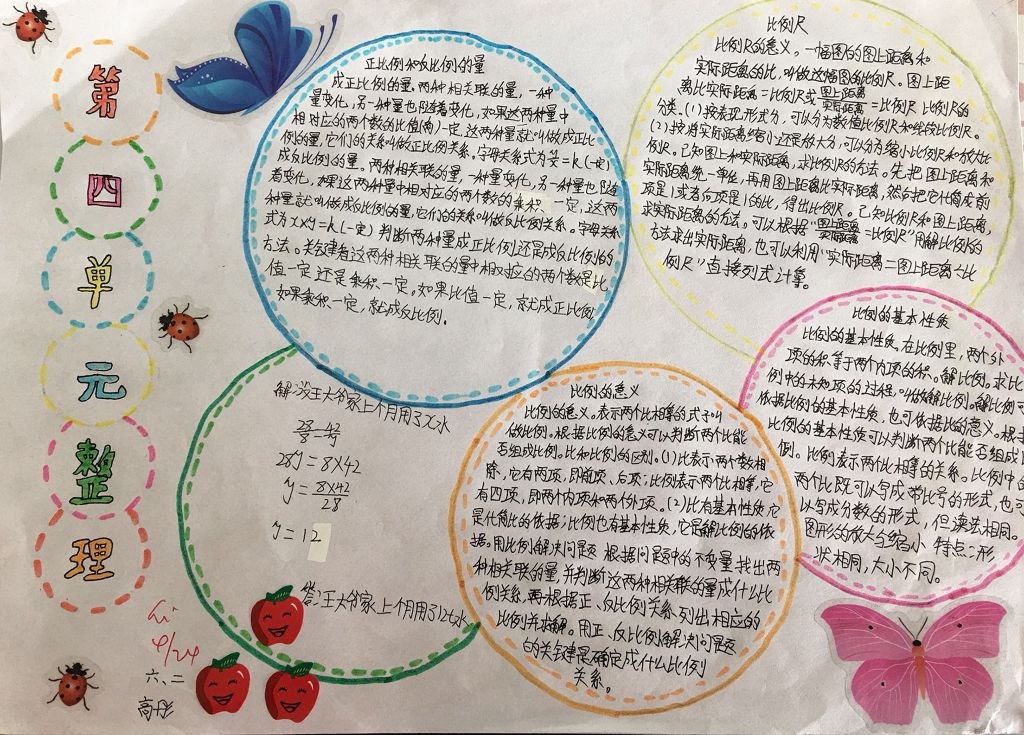 第
四
单
元
整
理
hi
4/24
六、二
高彤
正比例和反比例的量
成正比例的量。两种相关联的量,一种
量变化,另一种量也随着变化,如果这两种量中
相对应的两个数的比值(商)一定,这两种量就叫做成正比
例的量,它们的关系叫做正比例关系。字母关系式为 y/x=k(一定)
成反比例的量。两种相关联的量,一种量变化,另一种量也随
着变化,如果这两种量中相对应的两个数的乘积 一定,这两
种量就叫做成反比例的量,它们的关系叫做反比例关系。字母关系
式为x×y=k(一定) 判断两种量成正比例还是成反比例的
方法。关键看这两种相关联的量中相对应的两个数是比
值一定 还是乘积一定。如果比值一定,就成正比例
如果乘积一定,就成反比例。
比例尺
比例尺的意义。一幅图的图上距离和
实际距离的比,叫做这幅图的比例尺。图上距
离比实际距离=比例尺或 图上距离/实际距离 =比例尺 比例尺的
分类。(1)按表现形式分,可以分为数值比例尺和线段比例尺。
(2)按将实际距离缩小还是放大分,可以分为缩小比例尺和放大比
例尺。已知图上和实际距离,求比例尺的方法。先把图上距离和
实际距离统一单位,再用图上距离比实际距离,然后把它化简成前
项是1或者后项是1的比,得出比例尺。已知比例尺和图上距离,
求实际距离的方法。可以根据“图上距离/实际距离=比例尺”用解比例的
方法求出实际距离,也可以利用“实际距离=图上距离÷比
例尺”直接列式计算。
比例的基本性质
比例的基本性质。在比例里,两个外
项的积等于两个内项的积。解比例。求比
例中的未知项的过程,叫做解比例。解比例可
依据比例的基本性质,也可依据比的意义。根据
比例的基本性质可以判断两个比能否组成比
例。比例表示两个比相等的关系。比例中的
两个比既可以写成带比号的形式,也可
以写成分数的形式,但读法相同。
图形的放大与缩小 特点:形
状相同,大小不同。
比例的意义
比例的意义。表示两个比相等的式子叫
做比例。根据比例的意义可以判断两个比能
否组成比例。比和比例的区别。(1)比表示两个数相
除,它有两项,即前项、后项;比例表示两个比相等,它
有四项,即两个内项和两个外项。(2)比有基本性质,它
是化简比的依据;比例也有基本性质,它是解比例的依
据。用比例解决问题 根据问题中的不变量找出两
种相关联的量,并判断这两种相关联的量成什么比
例关系,再根据正、反比例关系列出相应的
比例并求解。用正、反比例解决问题
的关键是确定成什么比例
关系。
解:设王大爷家上个月用了x水
28/8=42/y
28y=8×42
y=8×42/28
y=12
答:王大爷家上个月用了12t水